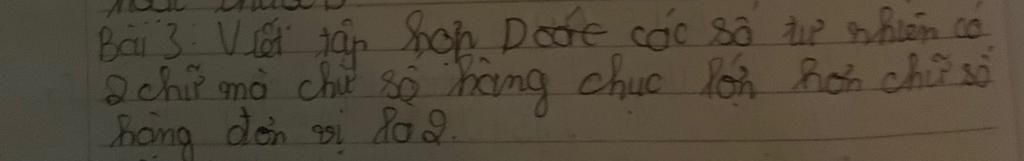 Bài 3: Viết tập hợp D các số tự nhiên có
2 chữ mà chữ số hàng chục lớn hơn chữ số
hàng đơn vị là 2.